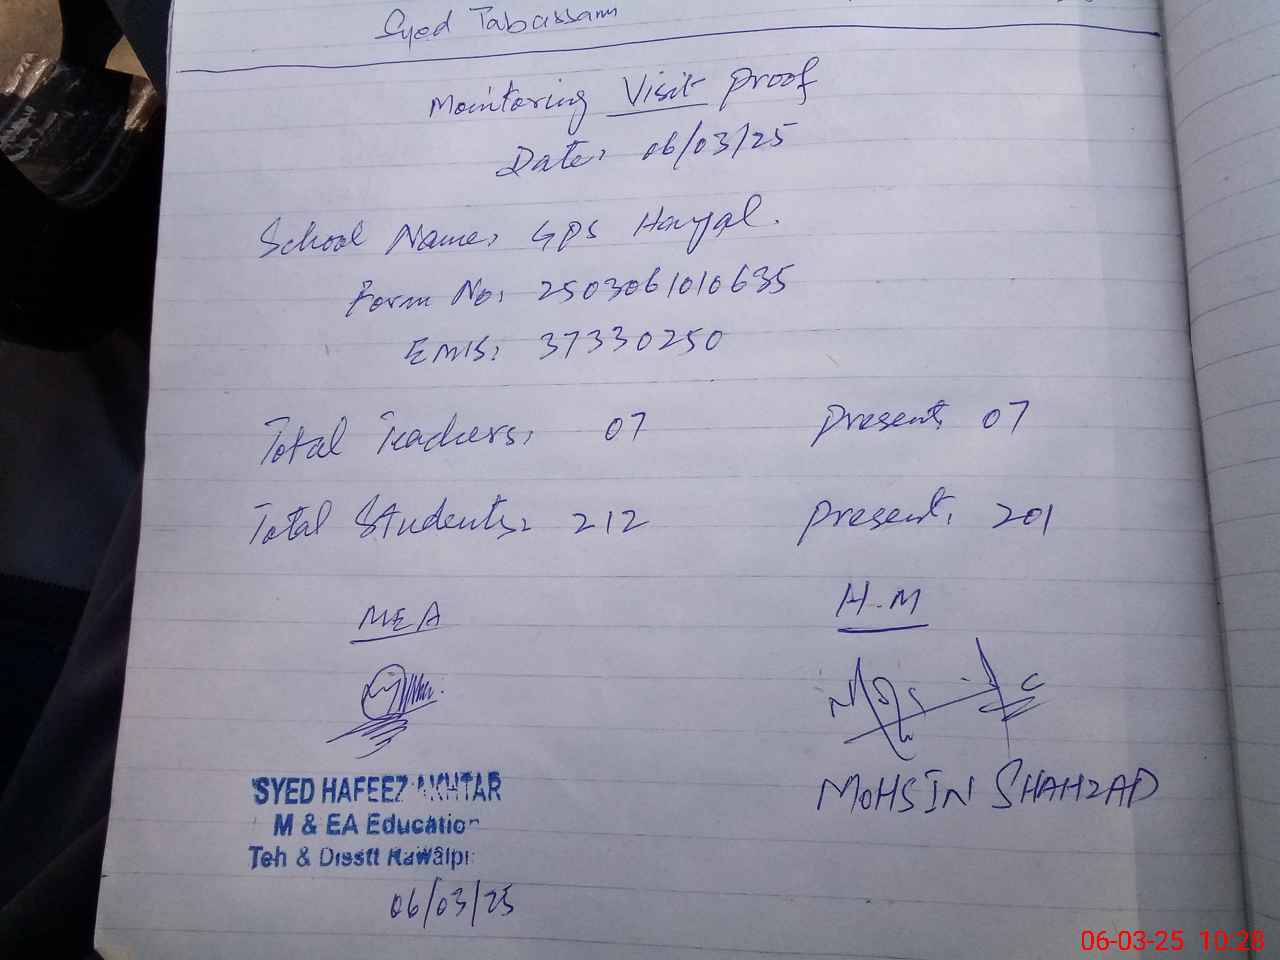 Syed Tabassam
Monitoring Visit Proof
Date: 06/03/25
School Name: GPS Hayal.
Form No: 2503061010635
EMIS: 37330250
Total Teachers: 07 Present: 07
Total Students: 212 Present: 201
MEA H.M
SYED HAFEEZ AKHTAR MOHSIN SHAHZAD
M & EA Education
Teh & Disstt Rawalpi
06/03/25
06-03-25 10:28